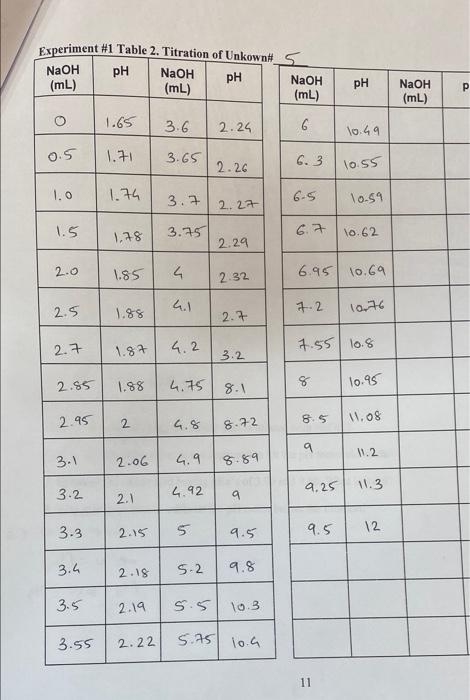 Experiment #1 Table 2. Titration of Unkown# 5
NaOH (mL) pH NaOH (mL) pH NaOH (mL) pH NaOH (mL) p
0 1.65 3.6 2.24 6 10.49
0.5 1.71 3.65 2.26 6.3 10.55
1.0 1.74 3.7 2.27 6.5 10.59
1.5 1.78 3.75 2.29 6.7 10.62
2.0 1.85 4 2.32 6.95 10.69
2.5 1.88 4.1 2.7 7.2 10.76
2.7 1.87 4.2 3.2 7.55 10.8
2.85 1.88 4.75 8.1 8 10.95
2.95 2 4.8 8.72 8.5 11.08
3.1 2.06 4.9 8.89 9 11.2
3.2 2.1 4.92 9 9.25 11.3
3.3 2.15 5 9.5 9.5 12
3.4 2.18 5.2 9.8
3.5 2.19 5.5 10.3
3.55 2.22 5.75 10.4
11